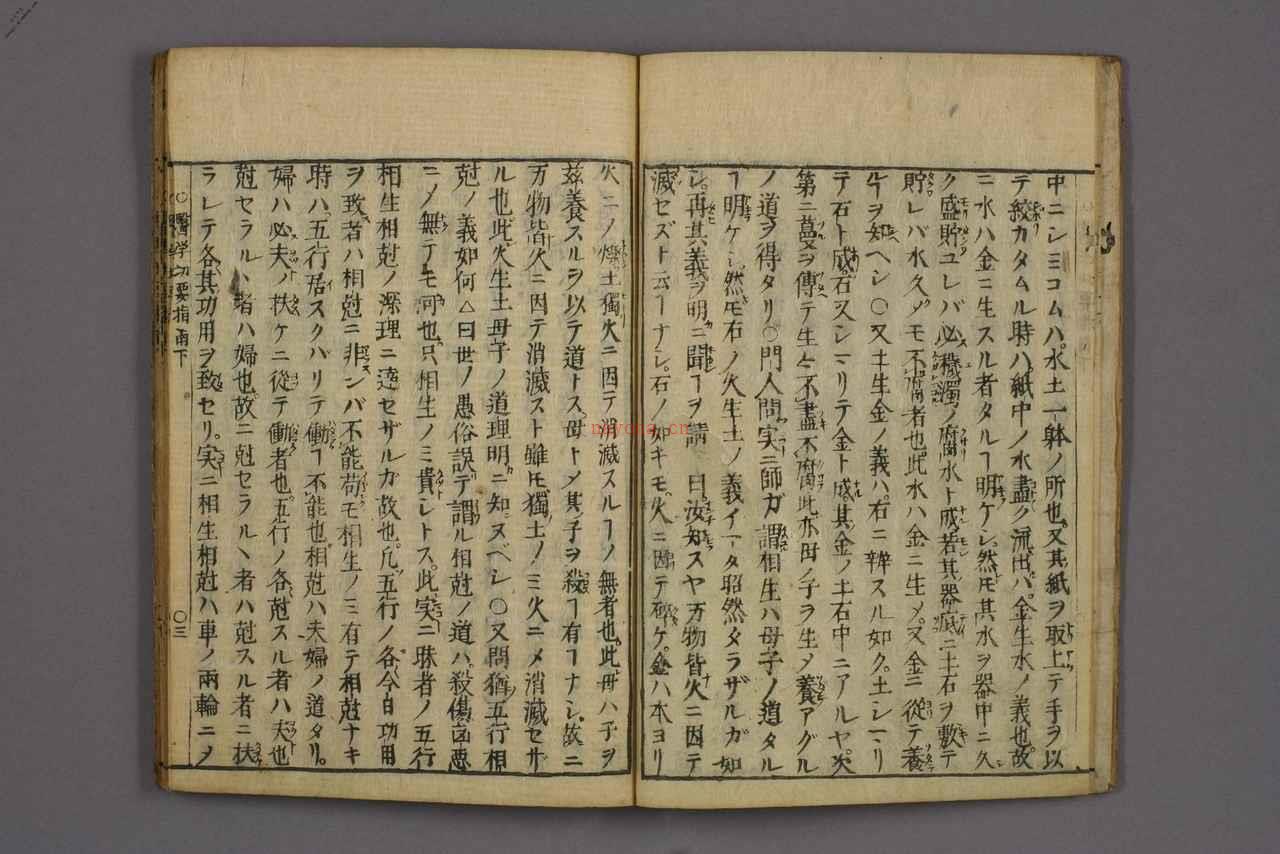 中ニシミコムハ。水土一躰ノ所也。又其紙ヲ取上テ手ヲ以
テ絞カタムル時ハ。紙中ノ水盡ク流出バ。金生水ノ義也。故
ニ水ハ金ニ生スル者タルヿ明ケシ。然モ其水ヲ器中ニ久
ク盛貯ユレバ必穢濁ノ腐水ト成。若其器底ニ土石ヲ敷テ
貯レバ水久メモ不腐者也。此水ハ金ニ生メ。又金ニ從テ養
ヲ知ヘシ〇又土生金ノ義ハ。右ニ辨スル如ク。土シマリ
テ石ト成。石又シマリテ金ト成。其金ノ土石中ニアルヤ。次
第ニ蔓ヲ傳テ生々不盡不腐。此亦母ノ子ヲ生メ養アグル
ノ道ヲ得タリ〇門人問実ニ師ガ謂相生ハ母子ノ道タル
ヿ明ケシ。然モ石ノ火生土ノ義イマタ昭然タラザルガ如
シ。再其義ヲ明ニ聞ヿヲ請 曰汝知スヤ万物皆火ニ因テ
滅セズト云ヿナシ。石ノ如キモ。火ニ因テ碎ケ。金ハ本ヨリ
火ニノ 土獨火ニ因テ消滅スルヿノ無者也。此母ハ子ヲ
茲養スルヲ以テ道トス。母トメ其子ヲ殺ヿ有ヿナシ。故ニ
万物皆火ニ因テ消滅スト雖モ。獨土ノミ火ニメ消滅セサ
ル也。此火生土母子ノ道理明ニ知ヌベシ〇又問猶五行相
尅ノ義如何△曰世ノ愚俗誤テ謂ル相尅ノ道ハ。殺傷凶悪
ニメ無テモ可也。只相生ノミ貴レトス。此実ニ昧者ノ五行
相生相尅ノ深理ニ達セザルカ故也。凡五行ノ各今日功用
ヲ致者ハ相尅ニ非ンバ不能。苟モ相生ノミ有テ相尅ナキ
時ハ。五行居スクバリテ働ヿ不能也。相尅ハ夫婦ノ道タリ。
婦ハ必夫ノ扶ケニ從テ働者也。五行ノ各尅スル者ハ夫也
尅セラルヽ者ハ婦也。故ニ尅セラルヽ者ハ尅スル者ニ扶
ラレテ各其功用ヲ致セリ。実ニ相生相尅ハ車ノ兩輪ニメ
〇醫学切要指南下 〇三
nayona.cn